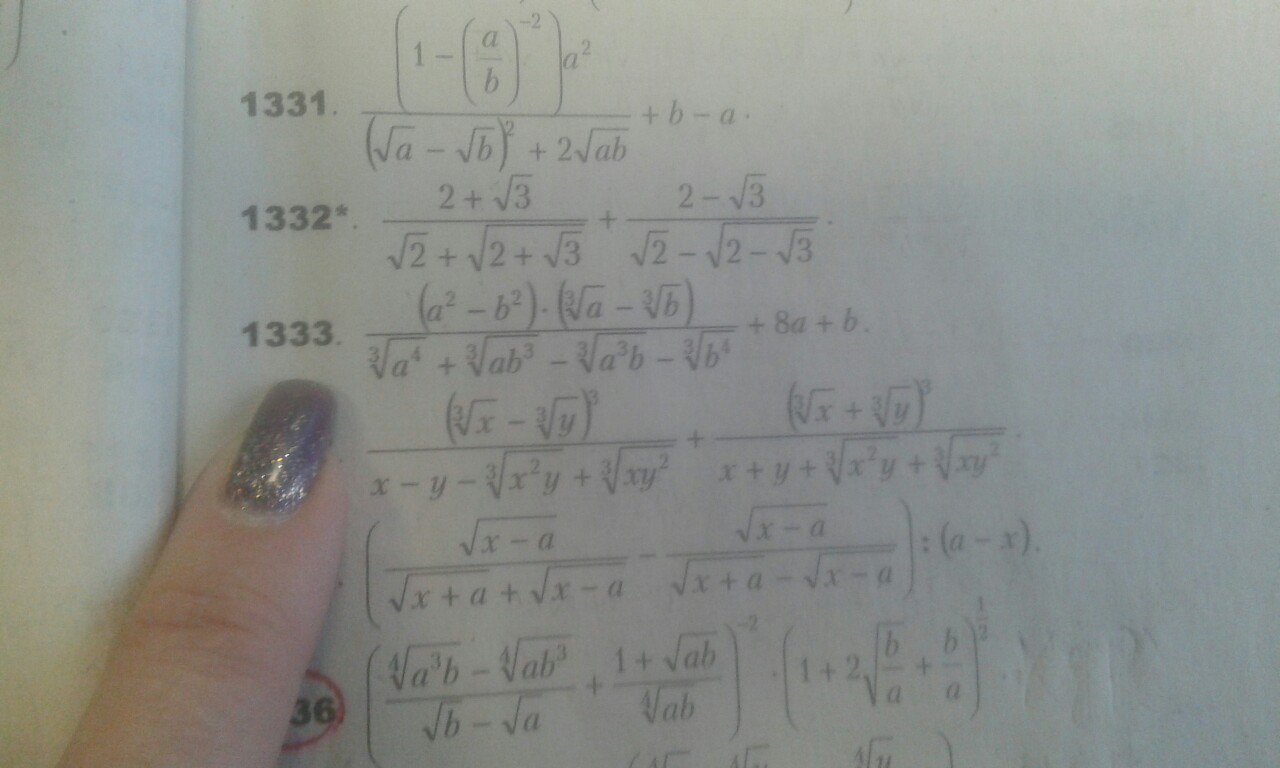 1331. \frac{\left(1-\left(\frac{a}{b}\right)^{-2}\right)a^2}{(\sqrt{a}-\sqrt{b})^2+2\sqrt{ab}}+b-a.
1332*. \frac{2+\sqrt{3}}{\sqrt{2}+\sqrt{2+\sqrt{3}}}+\frac{2-\sqrt{3}}{\sqrt{2}-\sqrt{2-\sqrt{3}}}.
1333. \frac{(a^2-b^2)\cdot(\sqrt[3]{a}-\sqrt[3]{b})}{\sqrt[3]{a^4}+\sqrt[3]{ab^3}-\sqrt[3]{a^3b}-\sqrt[3]{b^4}}+8a+b.
\frac{(\sqrt[3]{x}-\sqrt[3]{y})^3}{x-y-\sqrt[3]{x^2y}+\sqrt[3]{xy^2}}+\frac{(\sqrt[3]{x}+\sqrt[3]{y})^3}{x+y+\sqrt[3]{x^2y}+\sqrt[3]{xy^2}}.
. \left(\frac{\sqrt{x-a}}{\sqrt{x+a}+\sqrt{x-a}}-\frac{\sqrt{x-a}}{\sqrt{x+a}-\sqrt{x-a}}\right):(a-x).
36 \left(\frac{\sqrt[4]{a^3b}-\sqrt[4]{ab^3}}{\sqrt{b}-\sqrt{a}}+\frac{1+\sqrt{ab}}{\sqrt[4]{ab}}\right)^{-2}\cdot\left(1+2\sqrt{\frac{b}{a}}+\frac{b}{a}\right)^{\frac{1}{2}}.